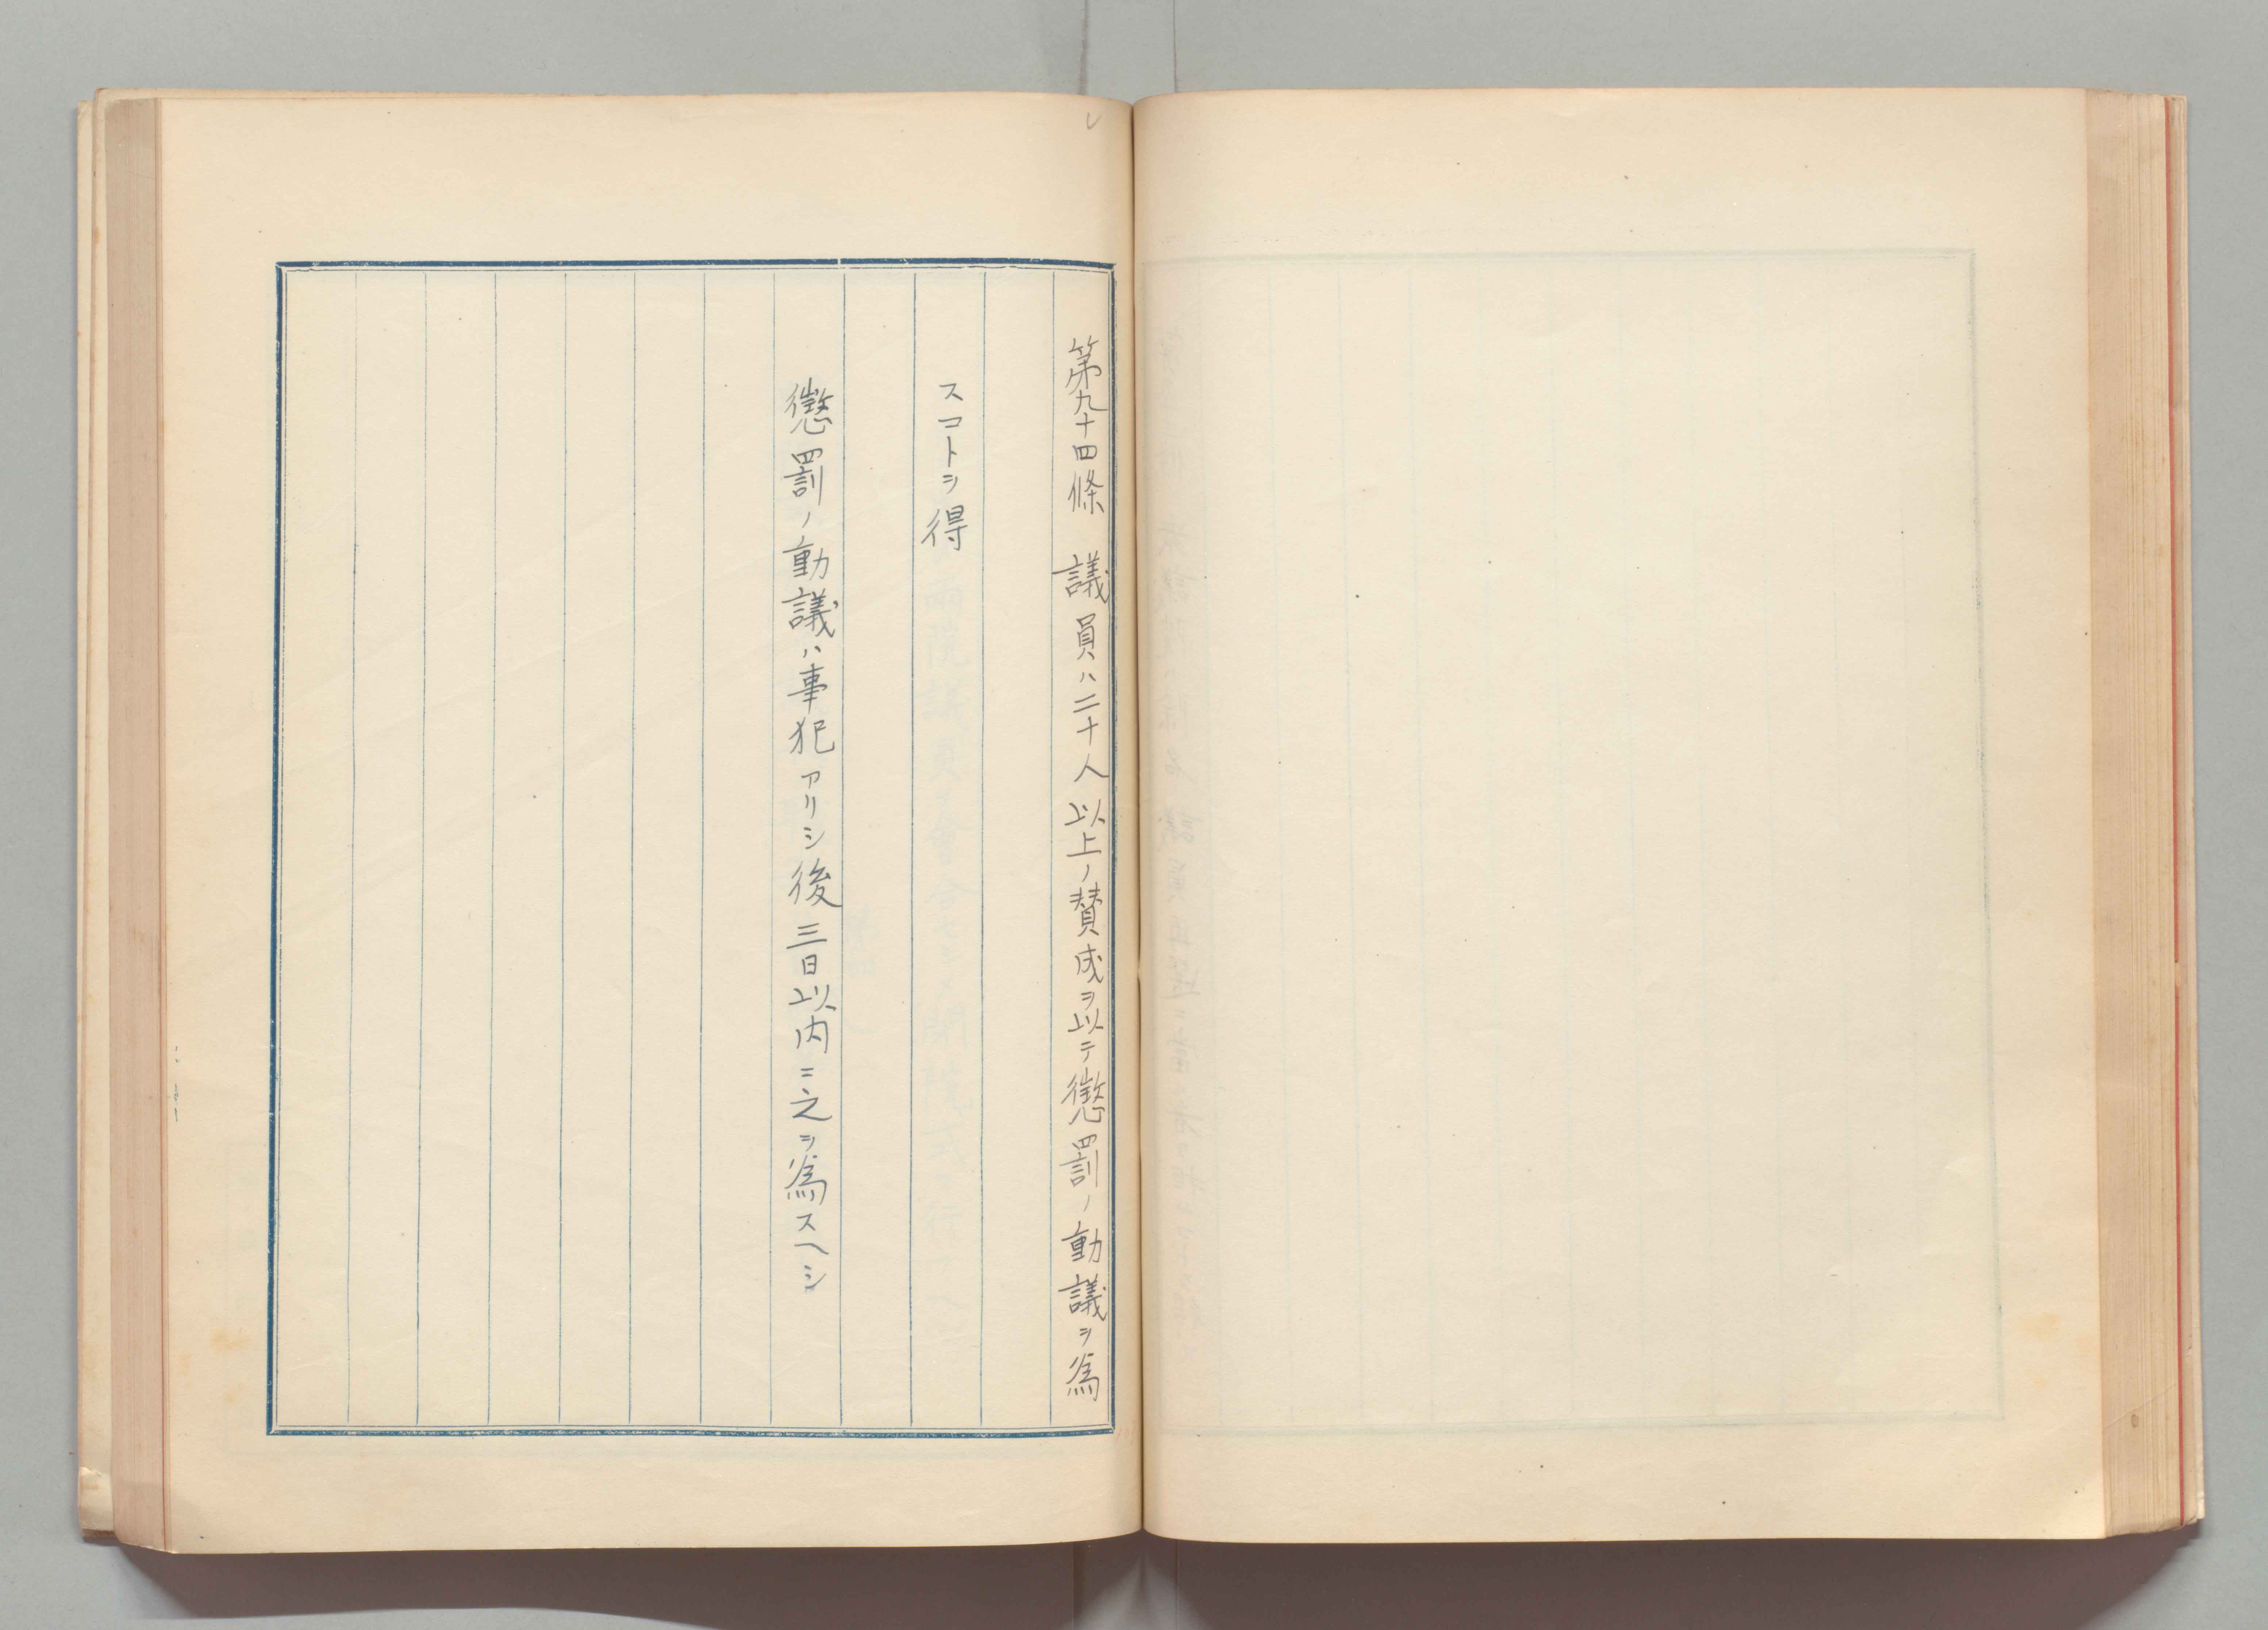 第九十四條　議員ハ二十人以上ノ賛成ヲ以テ懲罰ノ動議ヲ爲
スコトヲ得
懲罰ノ動議ハ事犯アリシ後三日以内ニ之ヲ爲スヘシ